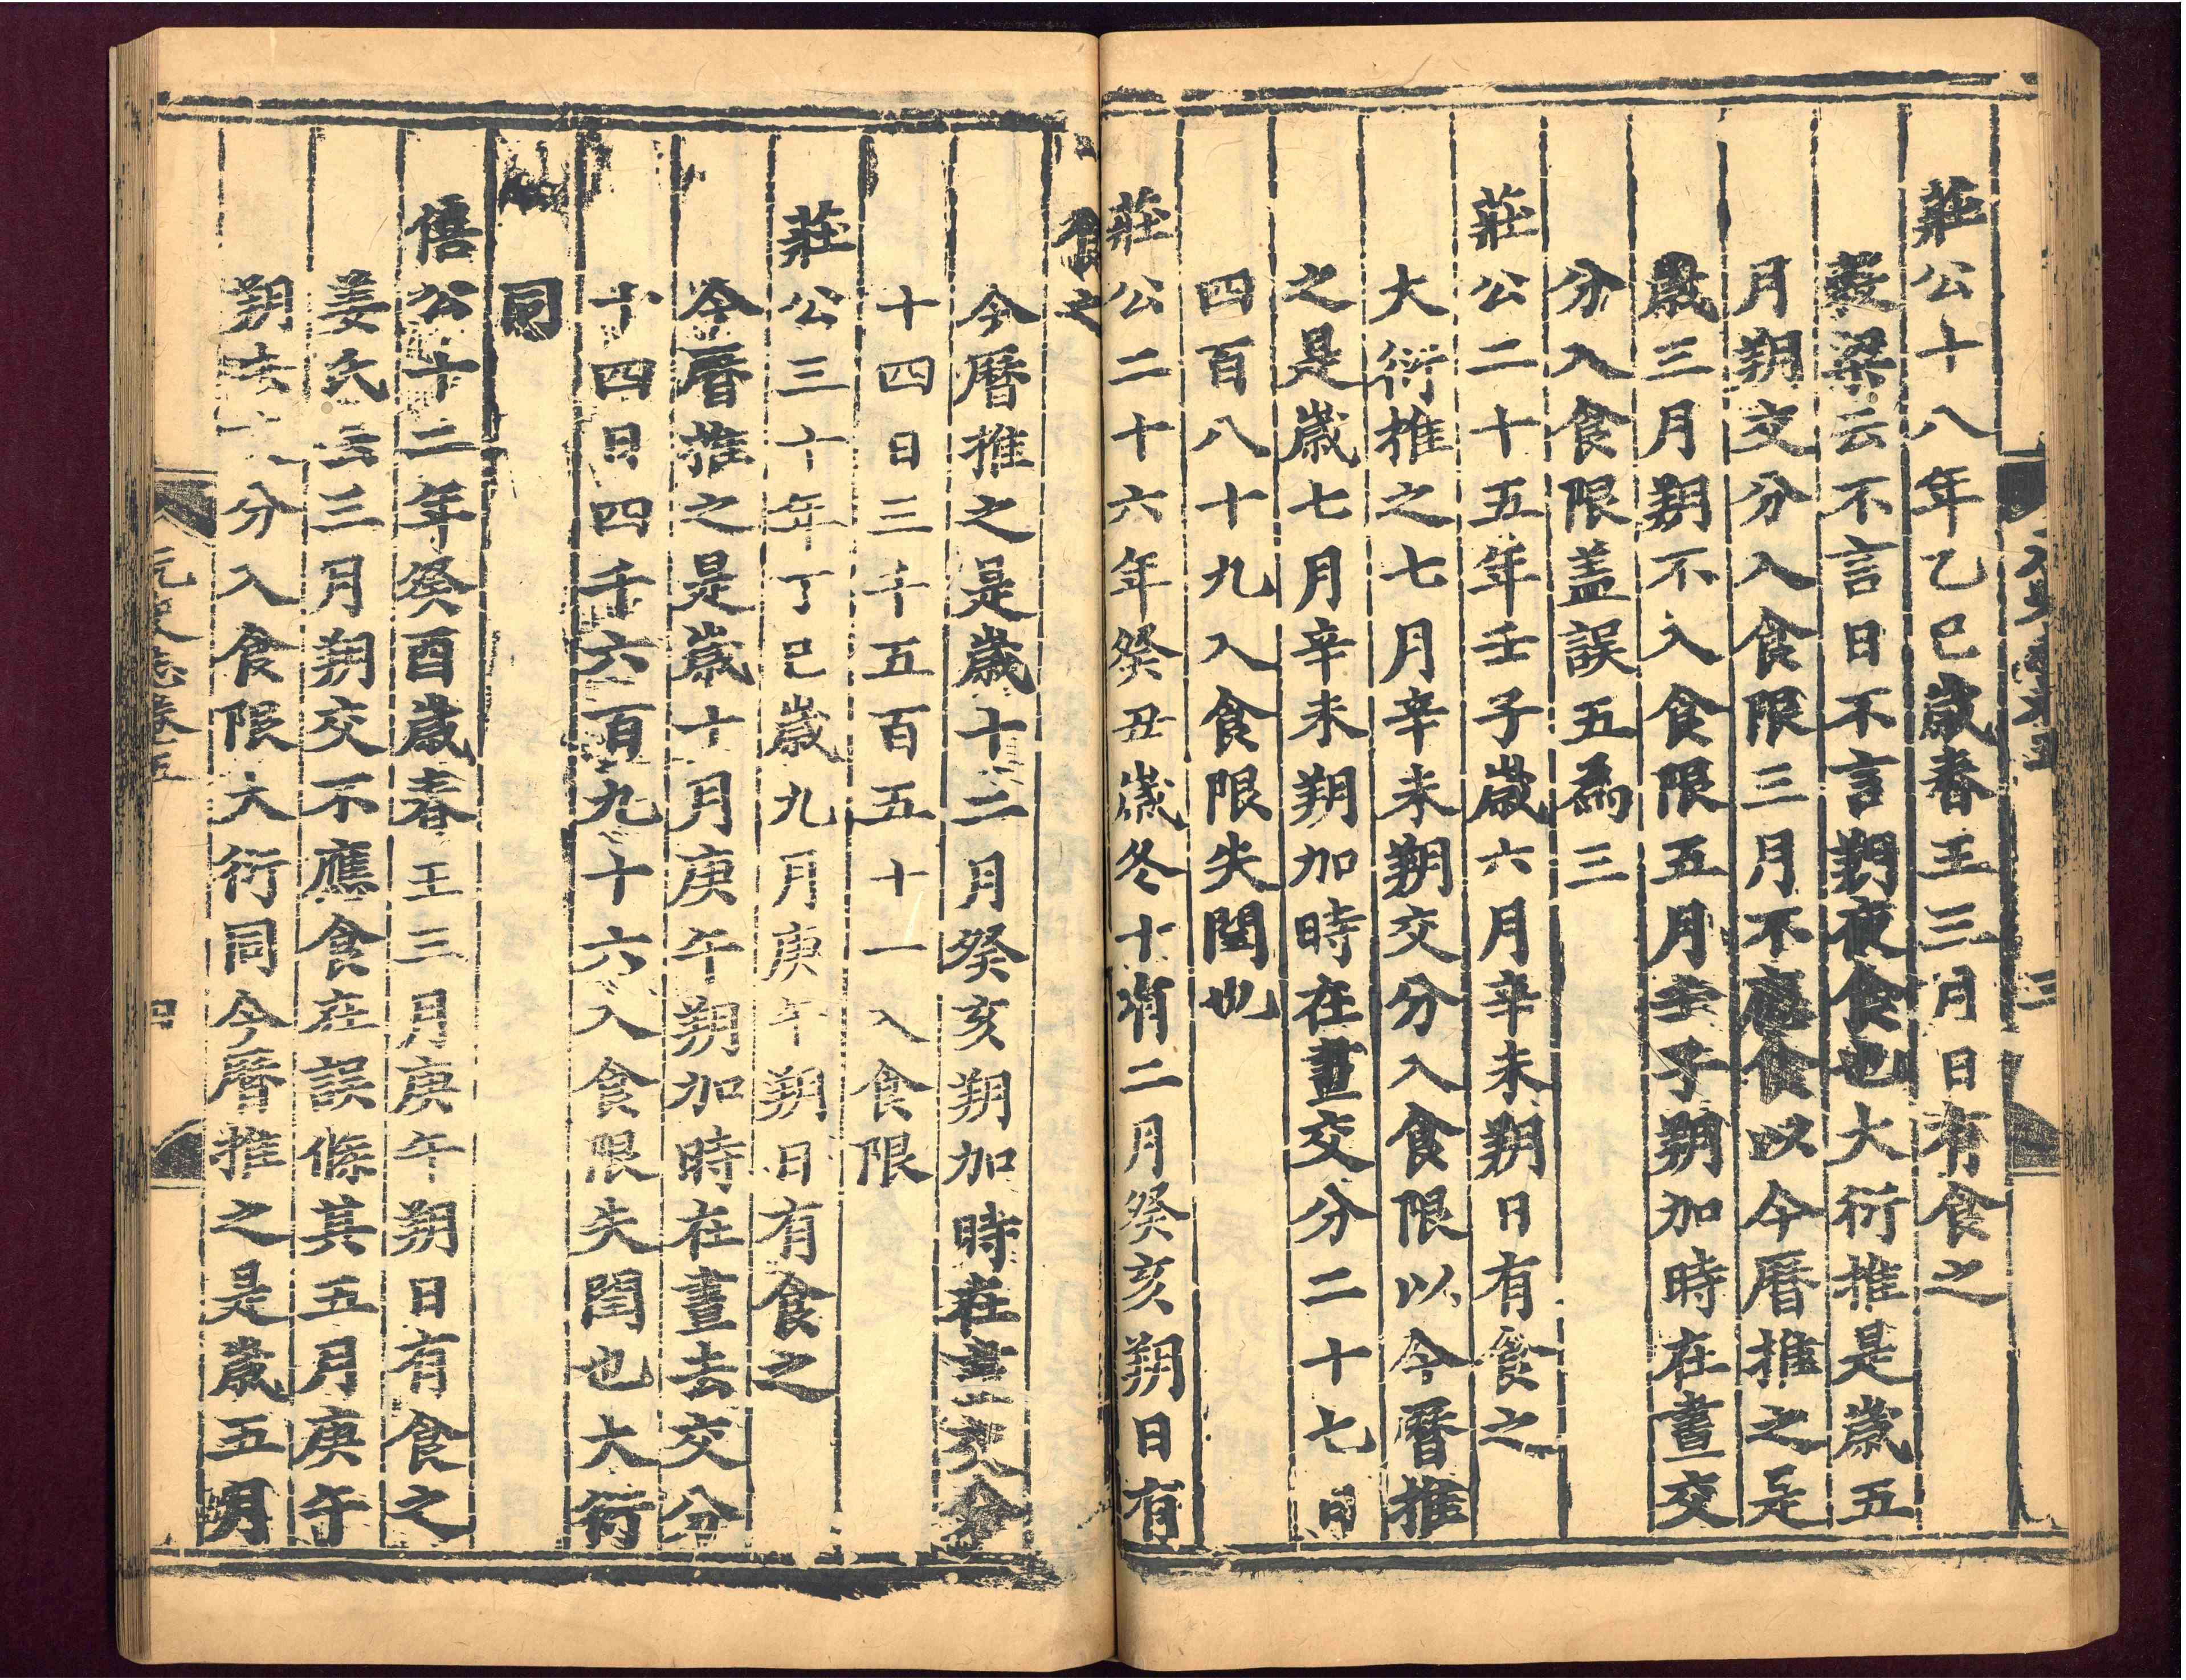 莊公十八年乙巳歲春王三月日有食之
穀梁云不言日不言朔夜食也大衍推是歲五
月朔交分入食限三月不應食以今曆推之是
歲三月朔不入食限五月壬子朔加時在晝交
分入食限盖誤五為三
莊公二十五年壬子歲六月辛未朔日有食之
大衍推之七月辛未朔交分入食限以今曆推
之是歲七月辛未朔加時在晝交分二十七日
四百八十九入食限失閏也
莊公二十六年癸丑歲冬十有二月癸亥朔日有
食之
今曆推之是歲十二月癸亥朔加時在晝交分
十四日三千五百五十一入食限
莊公三十年丁巳歲九月庚午朔日有食之
今曆推之是歲十月庚午朔加時在晝去交分
十四日四千六百九十六入食限失閏也大衍
同
僖公十二年癸酉歲春王三月庚午朔日有食之
姜氏云三月朔交不應食在誤條其五月庚午
朔去交分入食限大衍同今曆推之是歲五月
元史志卷五
四